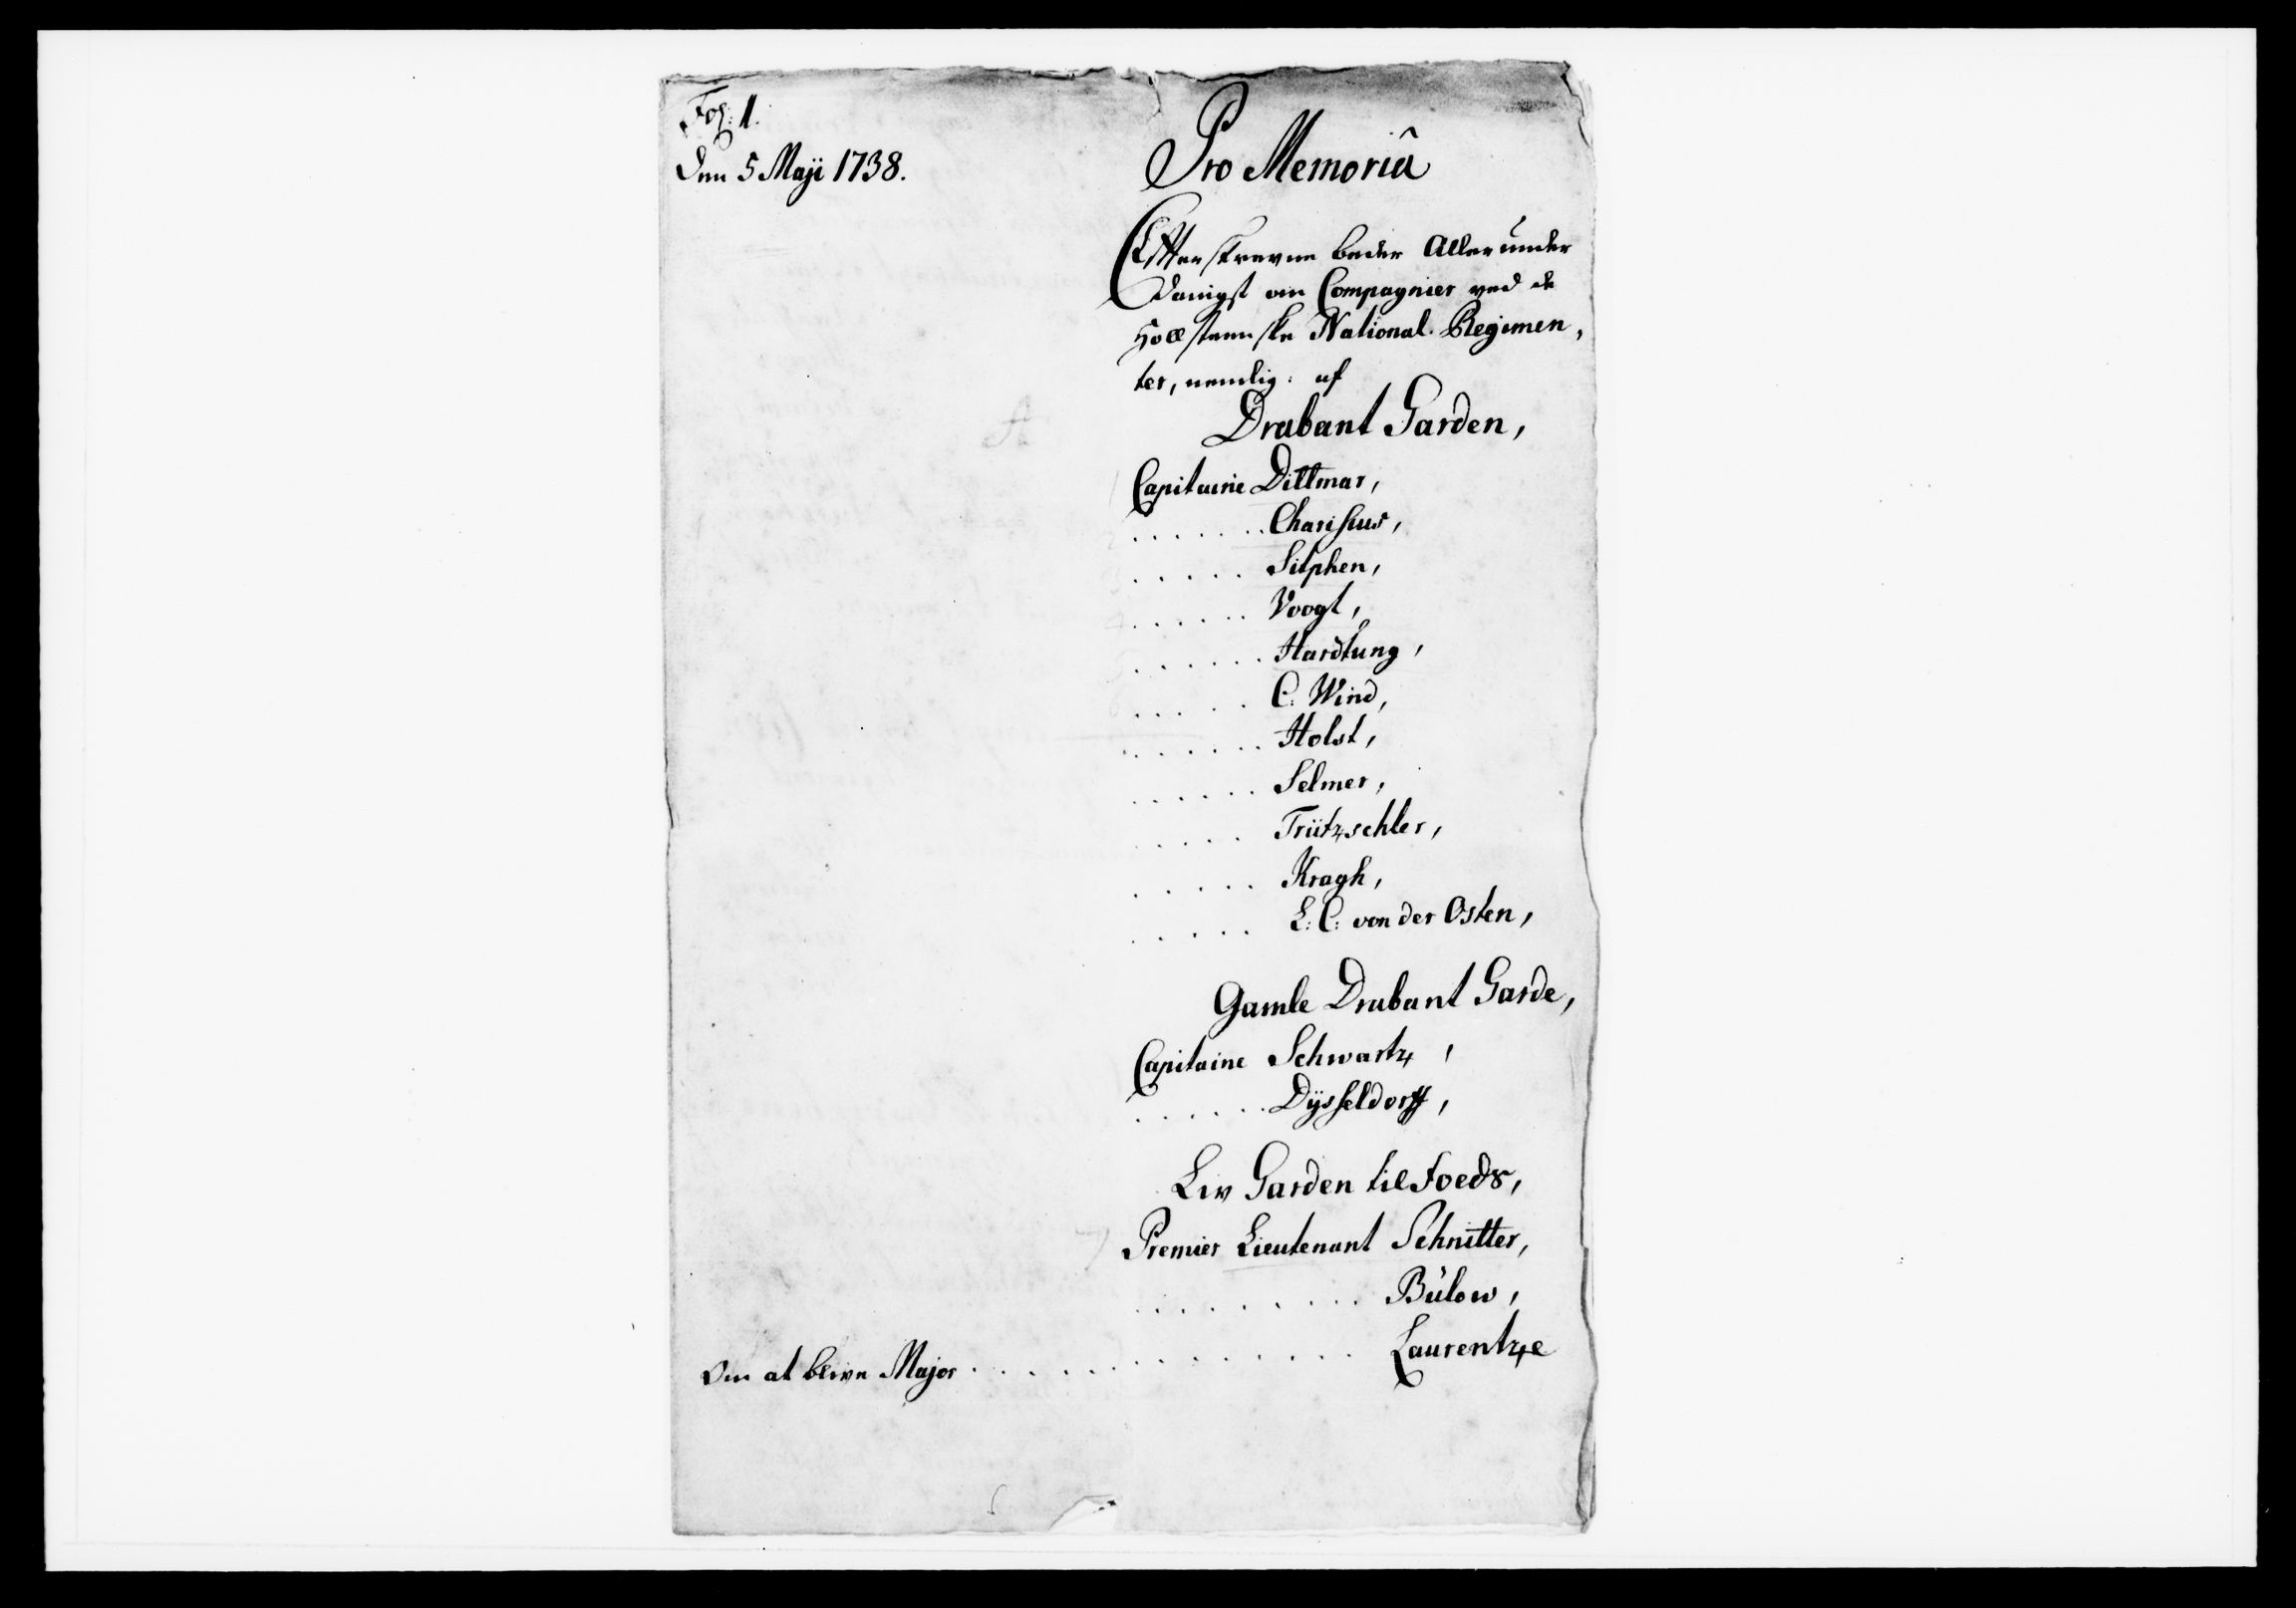 Fol: 1.
Den 5 Maji 1738.
Pro Memoriâ
Efterskrevne beder Allerunder
danigst om Compagnier ved de
Hollsteenske National Regimen,
ter, nemlig: af
Drabant Garden,
Capitaine Dittmar,
. . . . . . . Charisius,
. . . . . Sitphen,
. . . . . . Voogt,
. . . . . . Hardtung,
. . . . . C: Wind,
. . . . . . Holst,
. . . . . . Selmer,
. . . . . Trützschler,
. . . . . Kragh,
. . . . . L: C: von der Osten,
Gamle Drabant Garde,
Capitaine Schwartz,
. . . . . . Dÿsseldorff,
Liv Garden til Foeds,
Premier Lieutenant Schnitter,
. . . . . . . . . Bülow,
Om at blive Major . . . . . . . . . . . . . . Laurentze